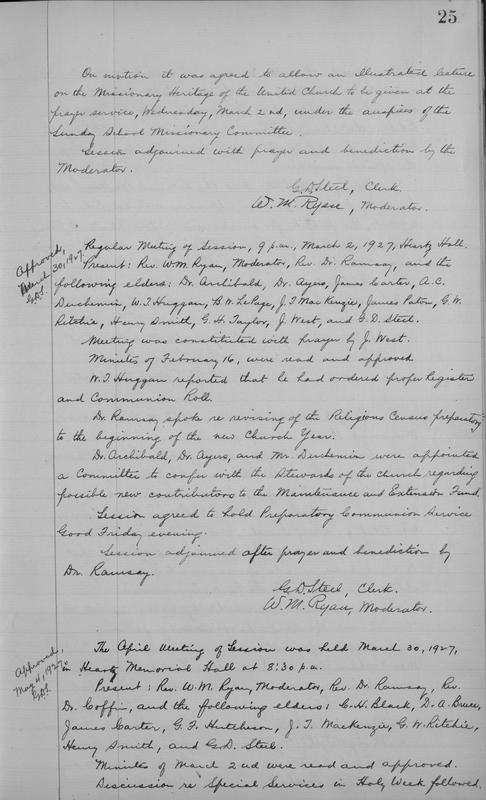 25
On motion it was agreed to allow an illustrated lecture
on the Missionary Heritage of the United Church to be given at the
prayer service, Wednesday, March 2nd, under the auspices of the
Sunday School Missionary Committee.
Session adjourned with prayer and benediction by the
Moderator.
G.D. Steel, Clerk.
W. M. Ryan, Moderator.
Approved,
March 30, 1927
G.D.S.
Regular Meeting of Session, 9 p.m., March 2, 1927, Heartz Hall.
Present: Rev. W.M. Ryan, Moderator, Rev. Dr. Ramsay, and the
following elders: Dr. Archibald, Dr. Ayers, James Carter, A.C.
Duchemin, W.T. Huggan, B.W. LePage, J.T. MacKenzie, James Paton, G.W.
Ritchie, Henry Smith, G.H. Taylor, J. West, and G.D. Steel.
Meeting was constituted with prayer by J. West.
Minutes of February 16, were read and approved.
W.T. Huggan reported that he had ordered proper Register
and Communion Roll.
Dr. Ramsay spoke re revising of the Religious Census preparatory
to the beginning of the new Church Year.
Dr. Archibald, Dr. Ayers, and Mr. Duchemin were appointed
a Committee to confer with the Stewards of the church regarding
possible new contributors to the Maintenance and Extension Fund.
Session agreed to hold Preparatory Communion Service
Good Friday evening.
Session adjourned after prayer and benediction by
Dr. Ramsay.
G.D. Steel, Clerk.
W. M. Ryan, Moderator.
Approved,
May 4, 1927
G.D.S.
The April Meeting of Session was held March 30, 1927,
in Heartz Memorial Hall at 8:30 p.m.
Present: Rev. W.M. Ryan, Moderator, Rev. Dr. Ramsay, Rev.
Dr. Coffin, and the following elders: C.H. Black, D.A. Bruce,
James Carter, G.F. Hutcheson, J.T. MacKenzie, G.W. Ritchie,
Henry Smith, and G.D. Steel.
Minutes of March 2nd were read and approved.
Discussion re Special Services in Holy Week followed.